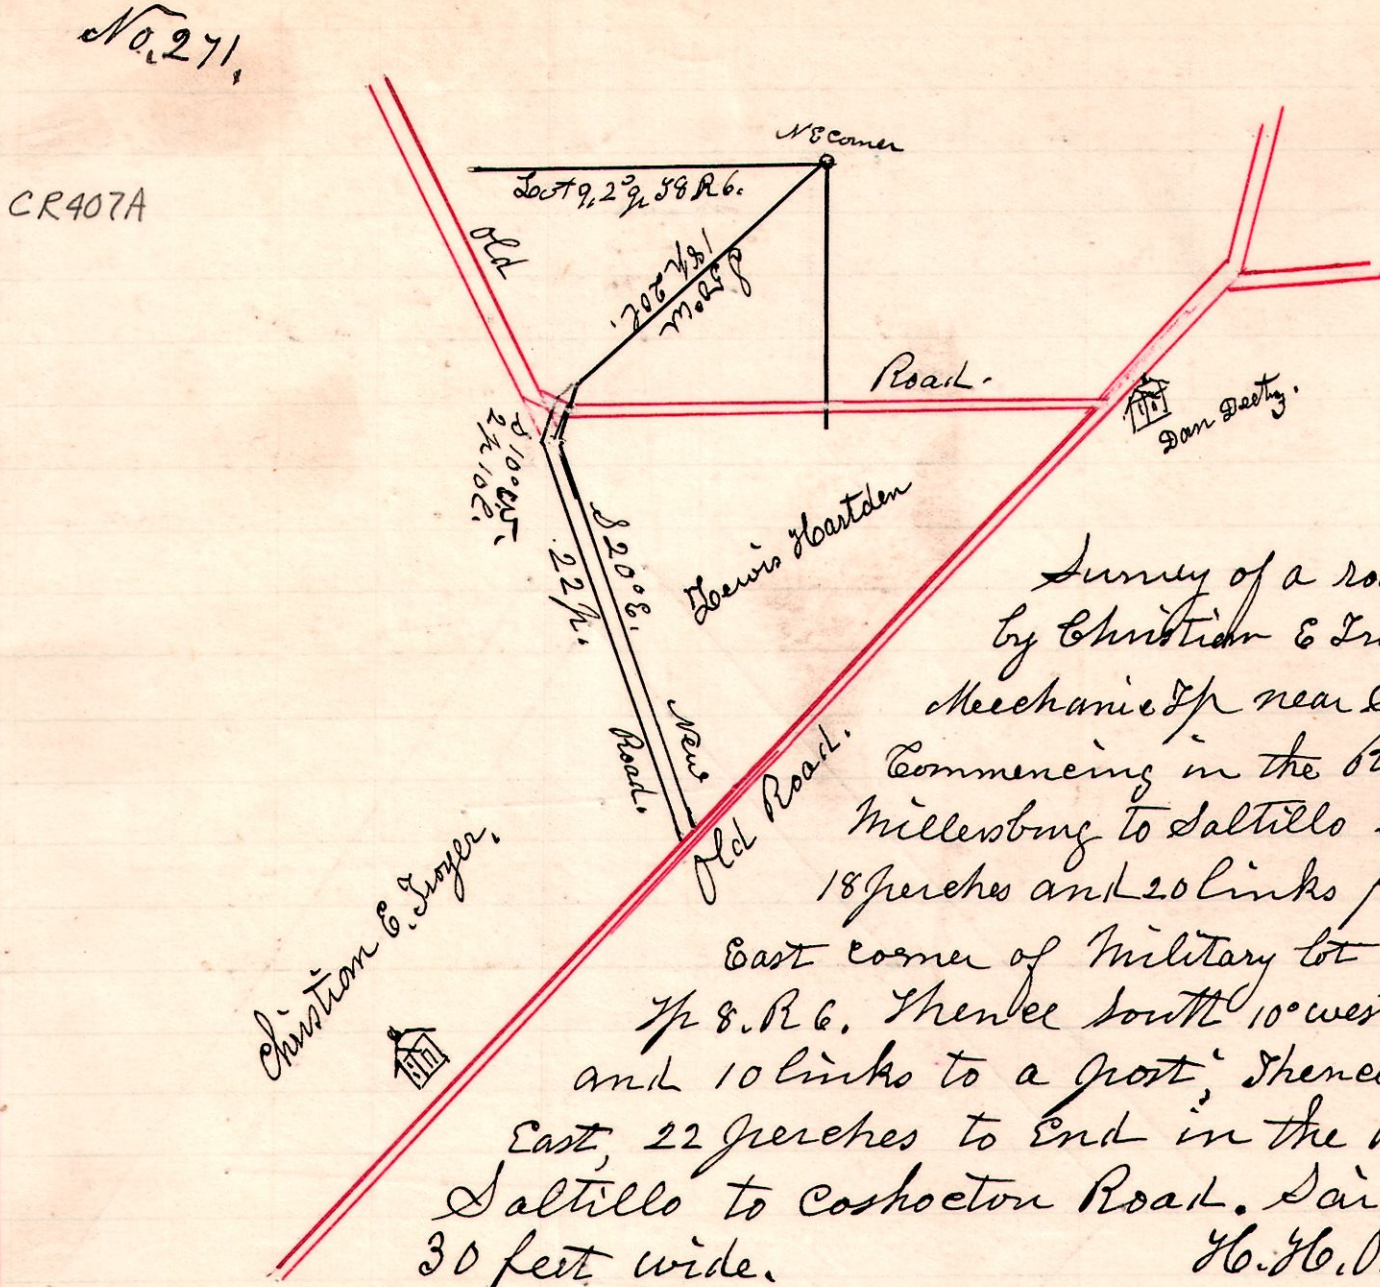 No. 271.
CR407A
N E Corner
Lot 9, 2° qr T8 R6.
Old
18p 20l.
S 50° W
Road.
Dan Deetz.
S 10° W.
2p 10l.
S 20° E.
22p.
Lewis Hartden
New
Road.
Old Road.
Christian E. Troyer.
Survey of a
by Christian E
Mechanic Tp near
Commencing in the
Millersburg to Saltillo
18 perches and 20 links
East corner of Military lot
Tp 8. R 6. Thence South 10° wes
and 10 links to a post; Thence
East, 22 perches to End in the
Saltillo to Coshocton Road. Sai
30 feet wide.
H. H.